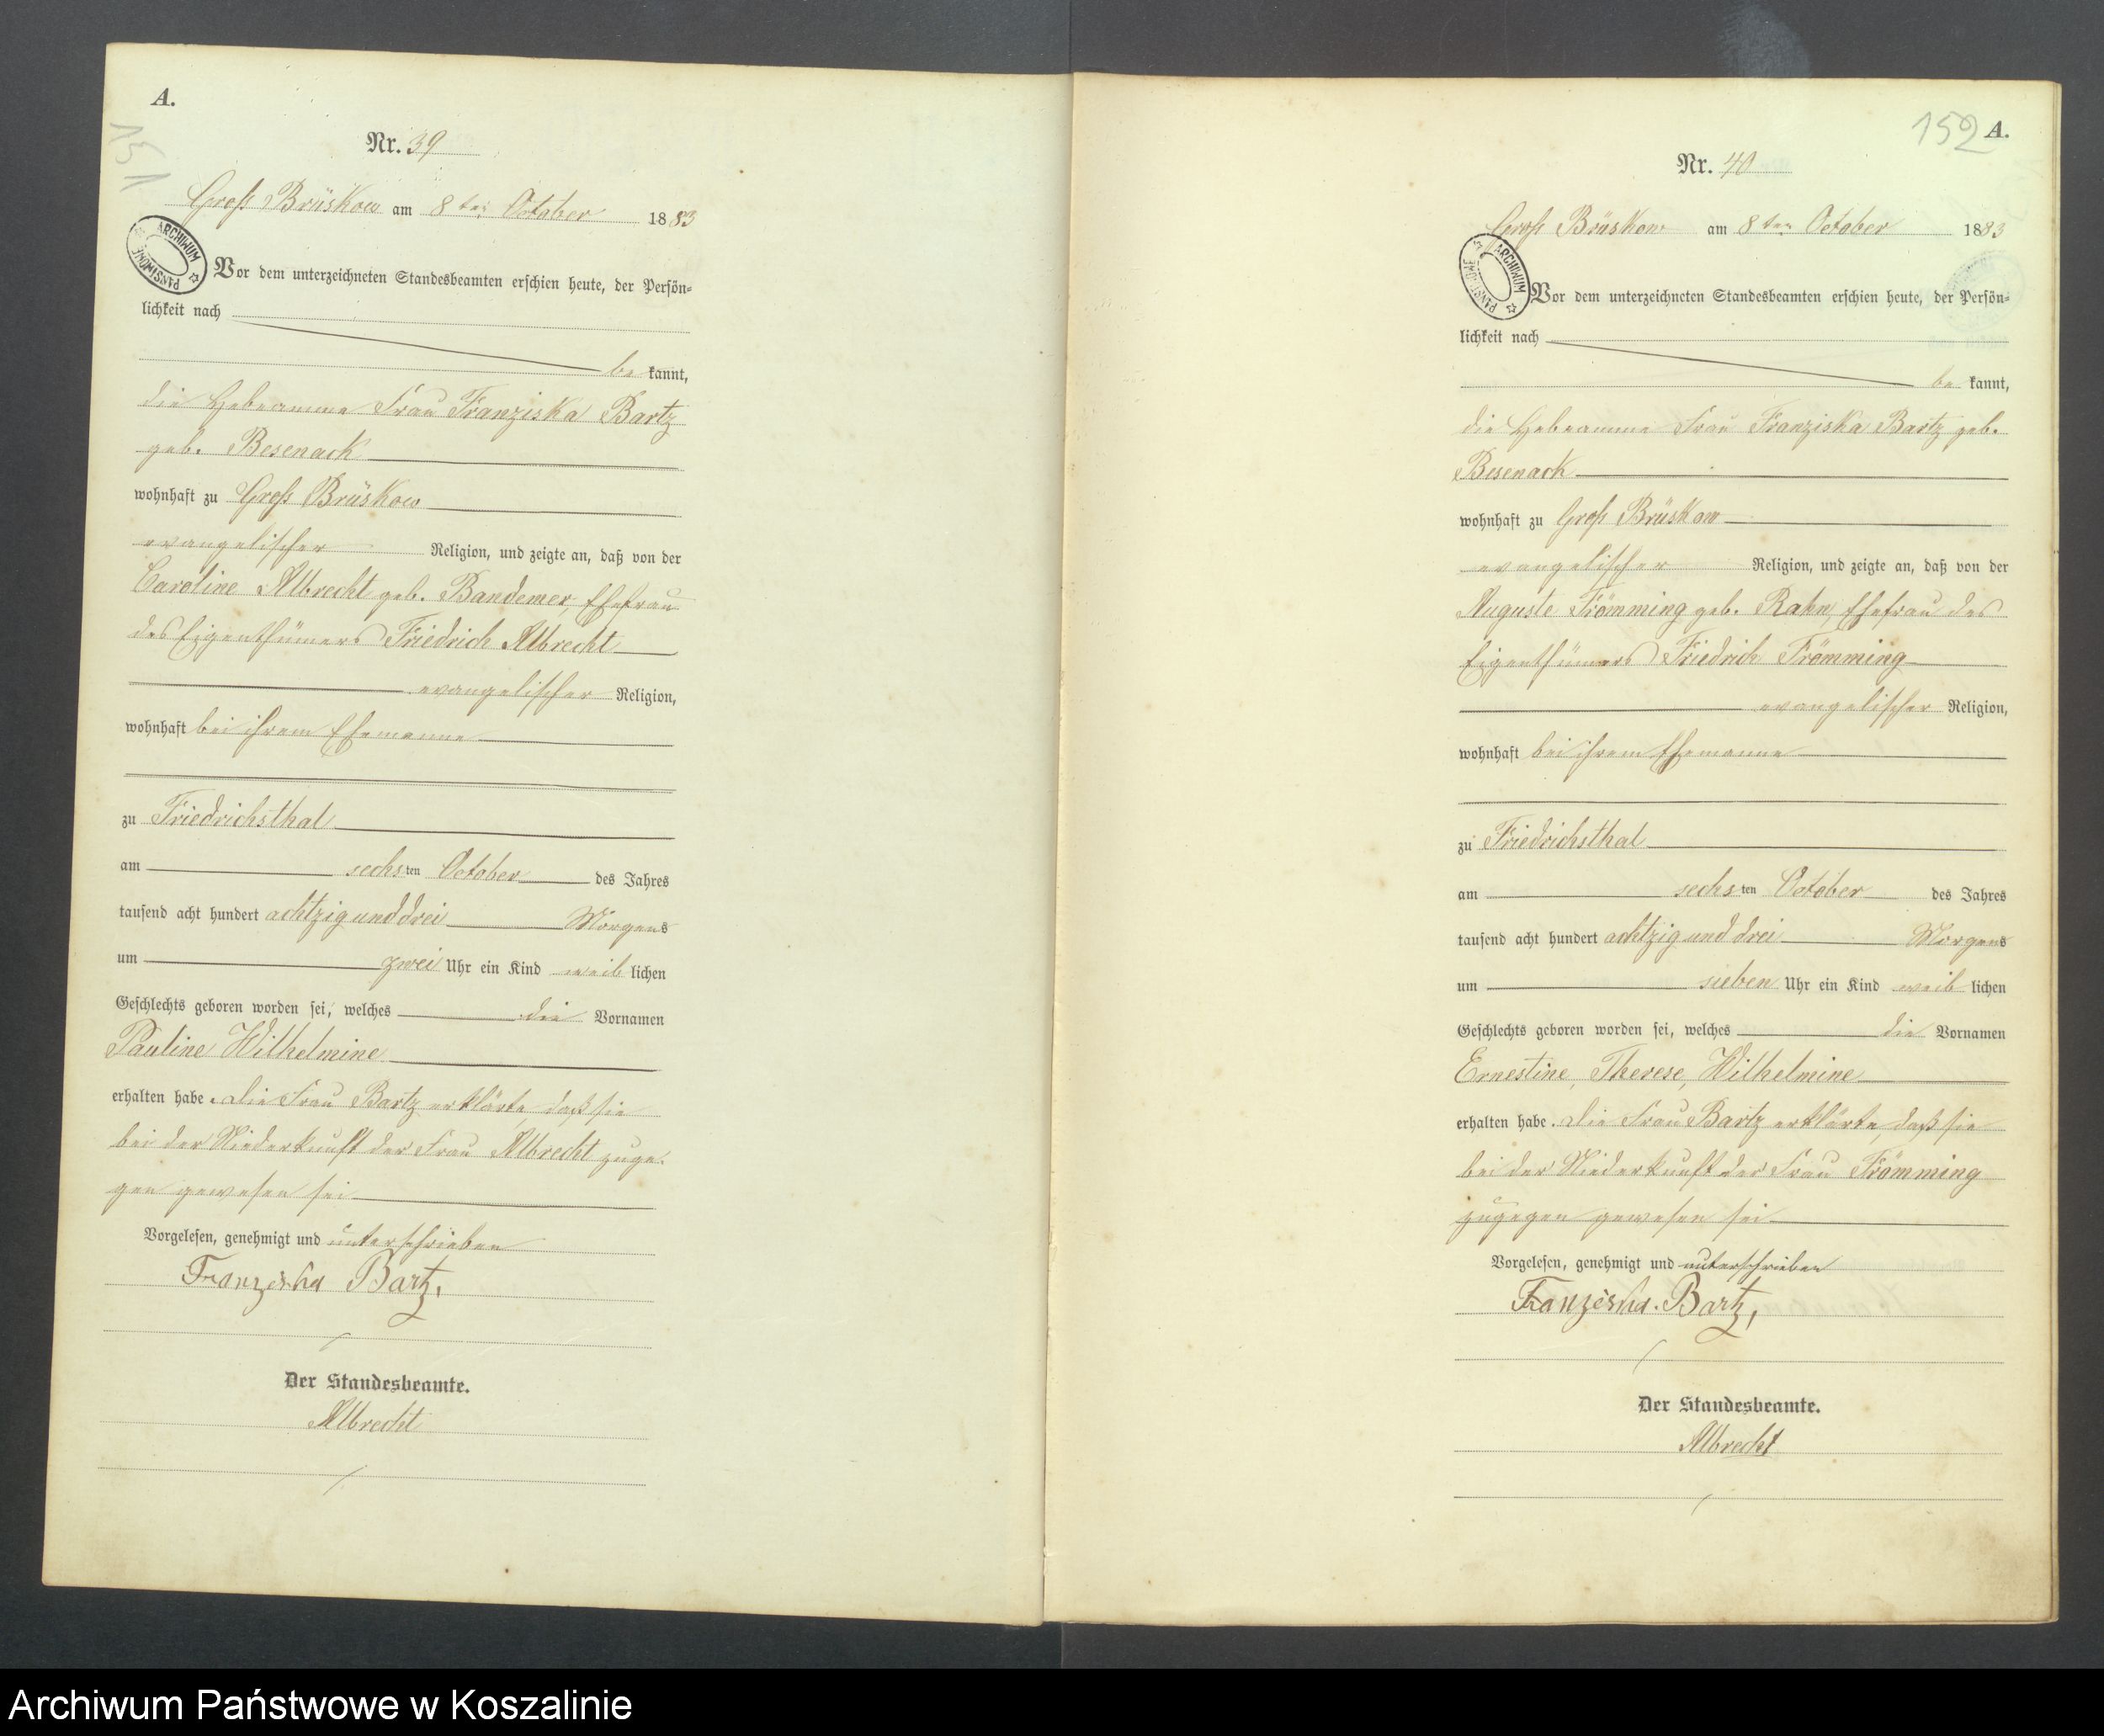 A.
151
Nr. 39
Groß Brüskow am 8ten October 1883
ARCHIWUM PAŃSTWOWE
Vor dem unterzeichneten Standesbeamten erschien heute, der Persön-
lichkeit nach
be kannt,
die Hebeamme Frau Franziska Bartz
geb. Besenack
wohnhaft zu Groß Brüskow
evangelischer Religion, und zeigte an, daß von der
Caroline Albrecht geb. Bandemer, Ehefrau
des Eigenthümers Friedrich Albrecht
evangelischer Religion,
wohnhaft bei ihrem Ehemanne
zu Friedrichsthal
am sechs ten October des Jahres
tausend acht hundert achtzig und drei Morgens
um zwei Uhr ein Kind weib lichen
Geschlechts geboren worden sei, welches die Vornamen
Pauline Wilhelmine
erhalten habe. Die Frau Bartz erklärte, daß sie
bei der Niederkunft der Frau Albrecht zuge-
gen gewesen sei
Vorgelesen, genehmigt und unterschrieben
Franziska Bartz,
Der Standesbeamte.
Albrecht
152 A.
Nr. 40
Groß Brüskow am 8ten October 1883
ARCHIWUM PAŃSTWOWE
Vor dem unterzeichneten Standesbeamten erschien heute, der Persön-
lichkeit nach
be kannt,
die Hebeamme Frau Franziska Bartz geb.
Besenack
wohnhaft zu Groß Brüskow
evangelischer Religion, und zeigte an, daß von der
Auguste Frömming geb. Rahn, Ehefrau des
Eigenthümers Friedrich Frömming
evangelischer Religion,
wohnhaft bei ihrem Ehemanne
zu Friedrichsthal
am sechs ten October des Jahres
tausend acht hundert achtzig und drei Morgens
um sieben Uhr ein Kind weib lichen
Geschlechts geboren worden sei, welches die Vornamen
Ernestine, Therese, Wilhelmine
erhalten habe. Die Frau Bartz erklärte, daß sie
bei der Niederkunft der Frau Frömming
zugegen gewesen sei
Vorgelesen, genehmigt und unterschrieben
Franziska. Bartz,
Der Standesbeamte.
Albrecht
Archiwum Państwowe w Koszalinie